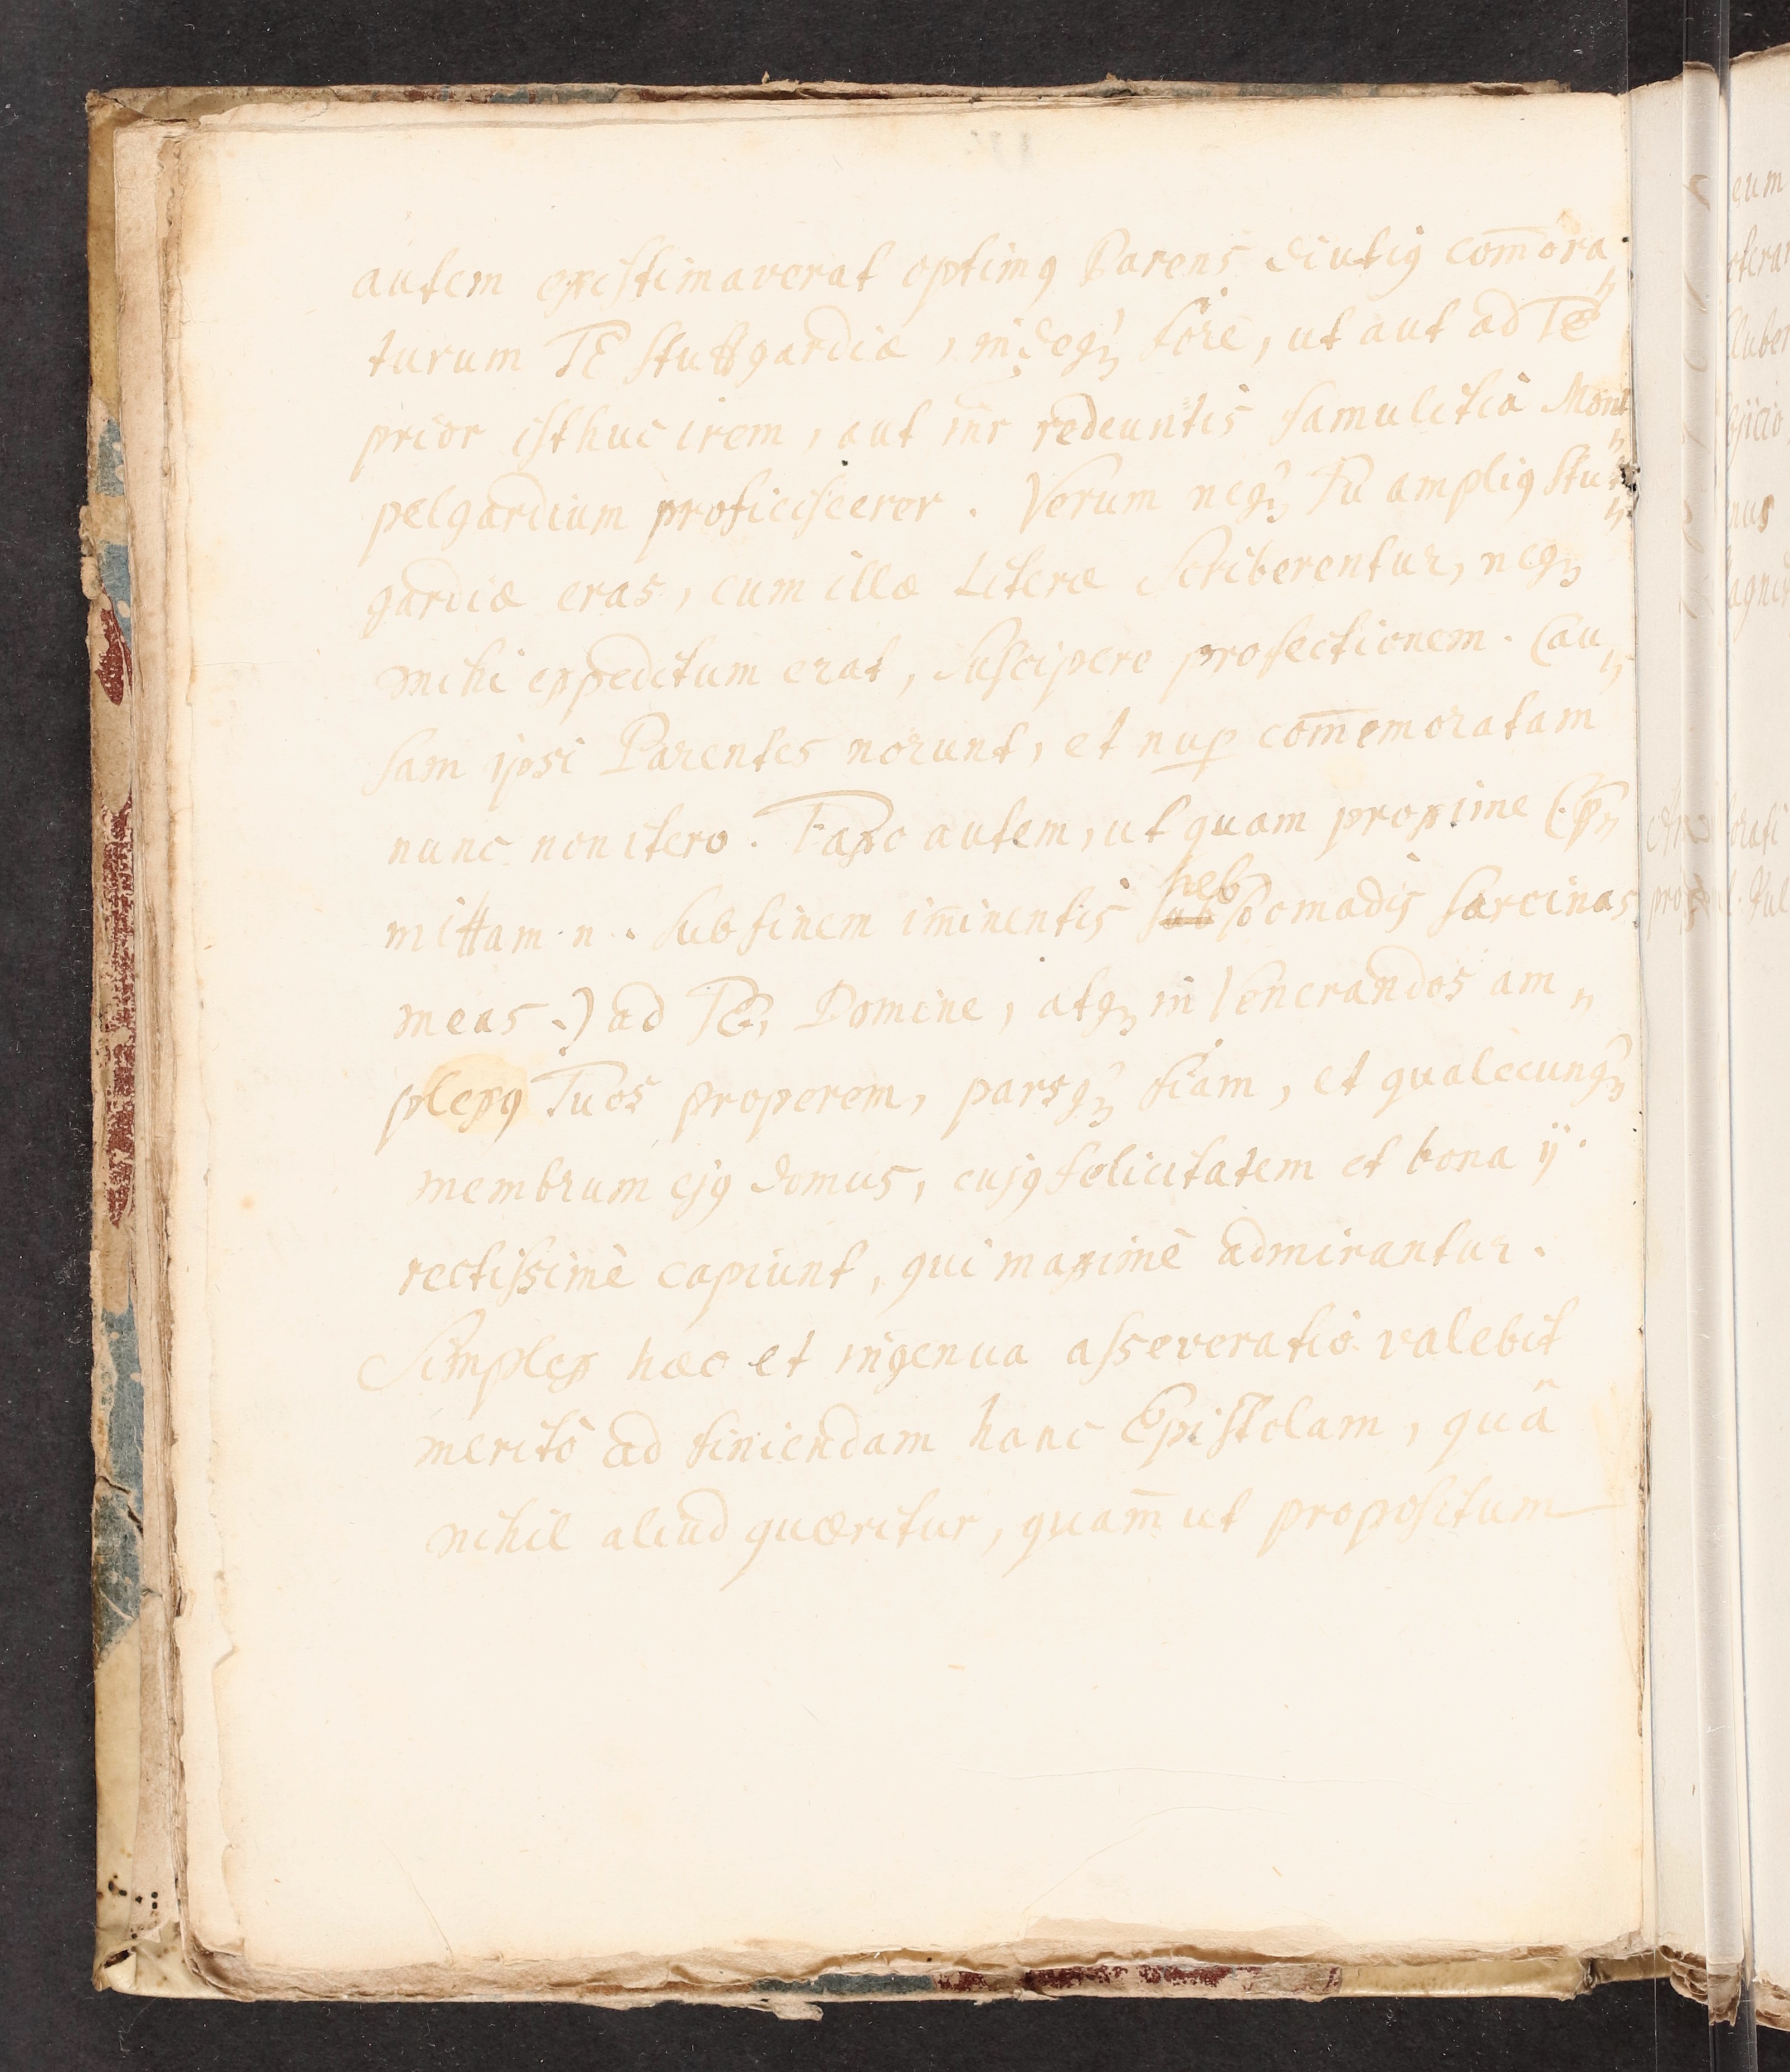 autem existimaverat optimꝰ Parens diutiꝰ com̄ora„
turum TE Stuttgardiæ, indeqꝫ fore, ut aut ad Te
prior isthuc irem, aut inr redeuntis famulitia Mom„
pelgardium proficiscerer. Verum neqꝫ Tu ampliꝰ Stut„
gardiæ eras, cum illæ Literæ scriberentur, neqꝫ
mihi expeditum erat, suscipere profectionem. Cau„
sam ipsi Parentes norunt, et nuꝑ com̄emoratam
nunc non itero. Faxo autem, ut quam proxime (:p̄„
mittam n. sub finem im̄inentis heb sub domadis sarcinas
meas.) ad TE, Domine, atqꝫ in Venerandos am„
plexꝰ Tuos properem, parsqꝫ fiam, et qualecunqꝫ
membrum ejꝰ domus, cujꝰ felicitatem et bona ij
rectissimè capiunt, qui maximè admirantur.
Simplex hæc et ingenua asseveratio valebit
meritò ad finiendam hanc Epistolam, quâ
nihil aliud quæritur, quam̄ ut propositum